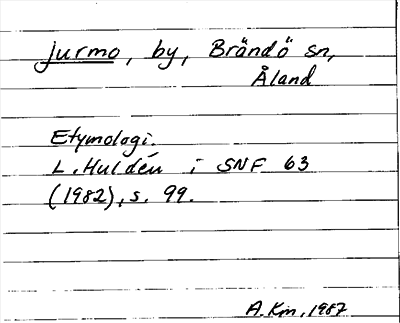 Jurmo, by, Brändö sn,
Åland
Etymologi.
L. Huldén i SNF 63
(1982), s. 99.
A. Km, 1987